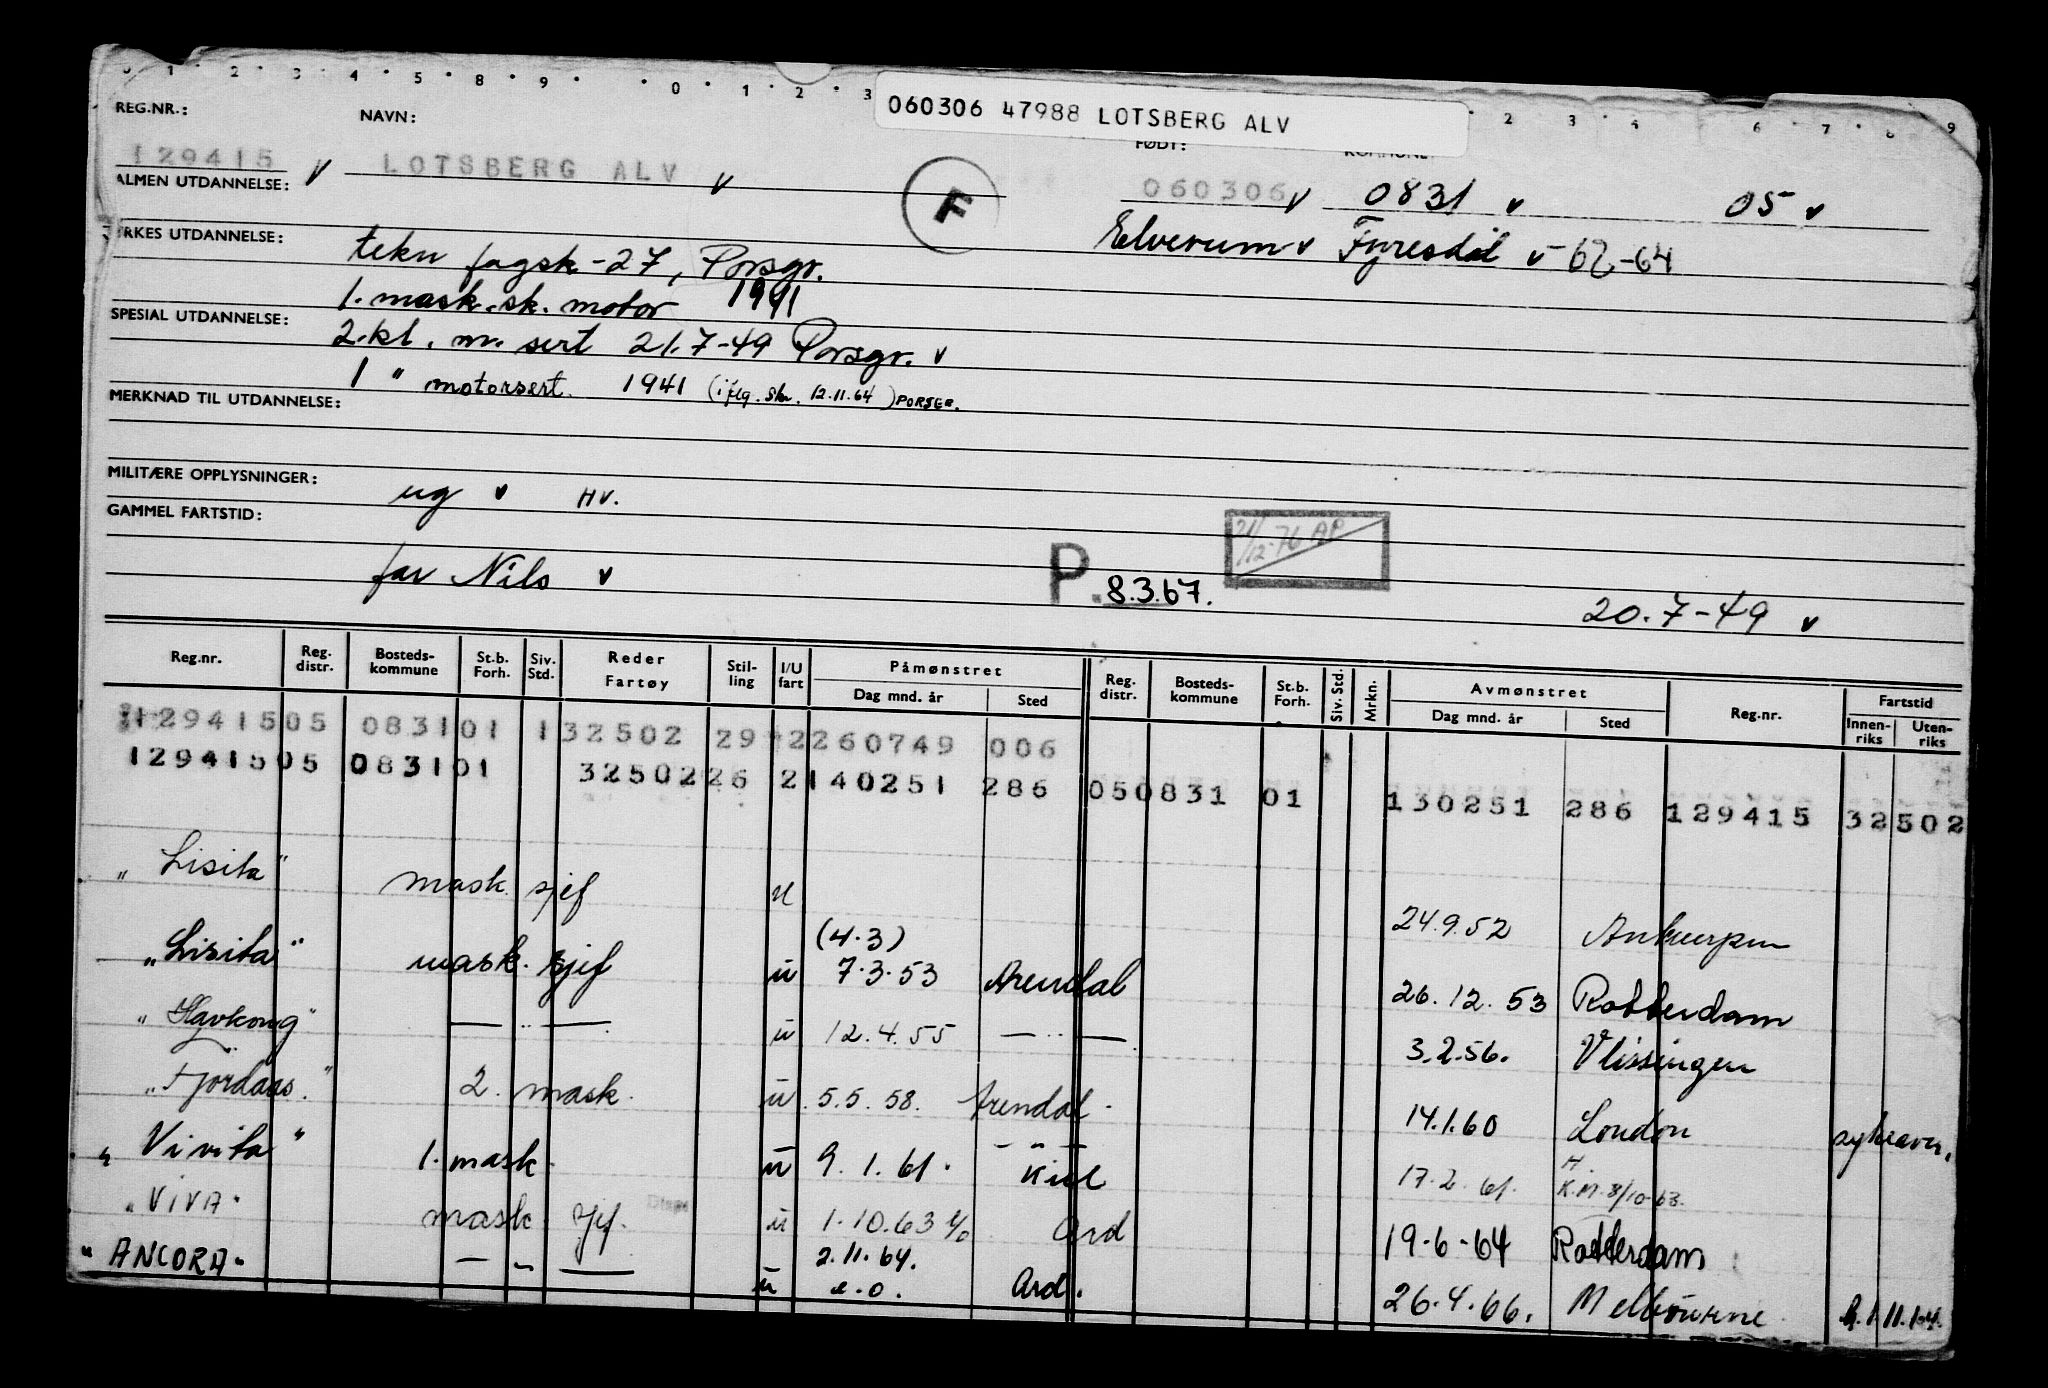 0 1 2 3 4 5 8 9 0 1 2 3 2 3 4 6 7 8 9
060306 47988 LOTSBERG ALV
REG.NR.: NAVN: FØDT: KOMMUNE
129415 v LOTSBERG ALV v F 060306 v 0831 v 05 v
ALMEN UTDANNELSE:
Elverum v Fyresdal v 62-64
YRKES UTDANNELSE: tekn fagsk-27, Porsgr.
1. mask.sk. motor 1941
SPESIAL UTDANNELSE: 2.kl. m. sert 21.7-49 Porsgr. v
1 " motorsert. 1941 (iflg. skr. 12.11.64) PORSGR.
MERKNAD TIL UTDANNELSE:
MILITÆRE OPPLYSNINGER: ug v HV.
GAMMEL FARTSTID:
21/12-76 AP
far Nils v P. 8.3.67. 20.7-49 v
Reg.nr. Reg. distr. Bosteds-kommune St.b. Forh. Siv. Std. Reder Fartøy Stil-ling I/U fart Påmønstret Dag mnd. år Sted Reg. distr. Bosteds-kommune St.b. Forh. Siv. Std. Mrkn. Avmønstret Dag mnd. år Sted Reg.nr. Fartstid Innen-riks Uten-riks
129415 05 0831 01 1 32502 29 2 260749 006
129415 05 0831 01 32502 26 2 140251 286 05 0831 01 130251 286 129415 32502
"Lisita" mask. sjef u 24.9.52 Antwerpen
"Lisita" mask. sjef u (4.3) 7.3.53 Arendal 26.12.53 Rotterdam
"Havkong" — " — u 12.4.55 — " — 3.2.56. Vlissingen
"Fjordaas." 2. mask. u 5.5.58. Arendal. 14.1.60 London sykeavm.
"Vivita" 1. mask. u 9.1.61. Kiel 17.2.61. H. K.M. 8/10-63.
"VIVA" mask. sjef. u 1.10.63 Ard 19-6-64 Rotterdam
"ANCORA" — " — u 2.11.64. e.o. Ard. 26.4.66. Melbourne.